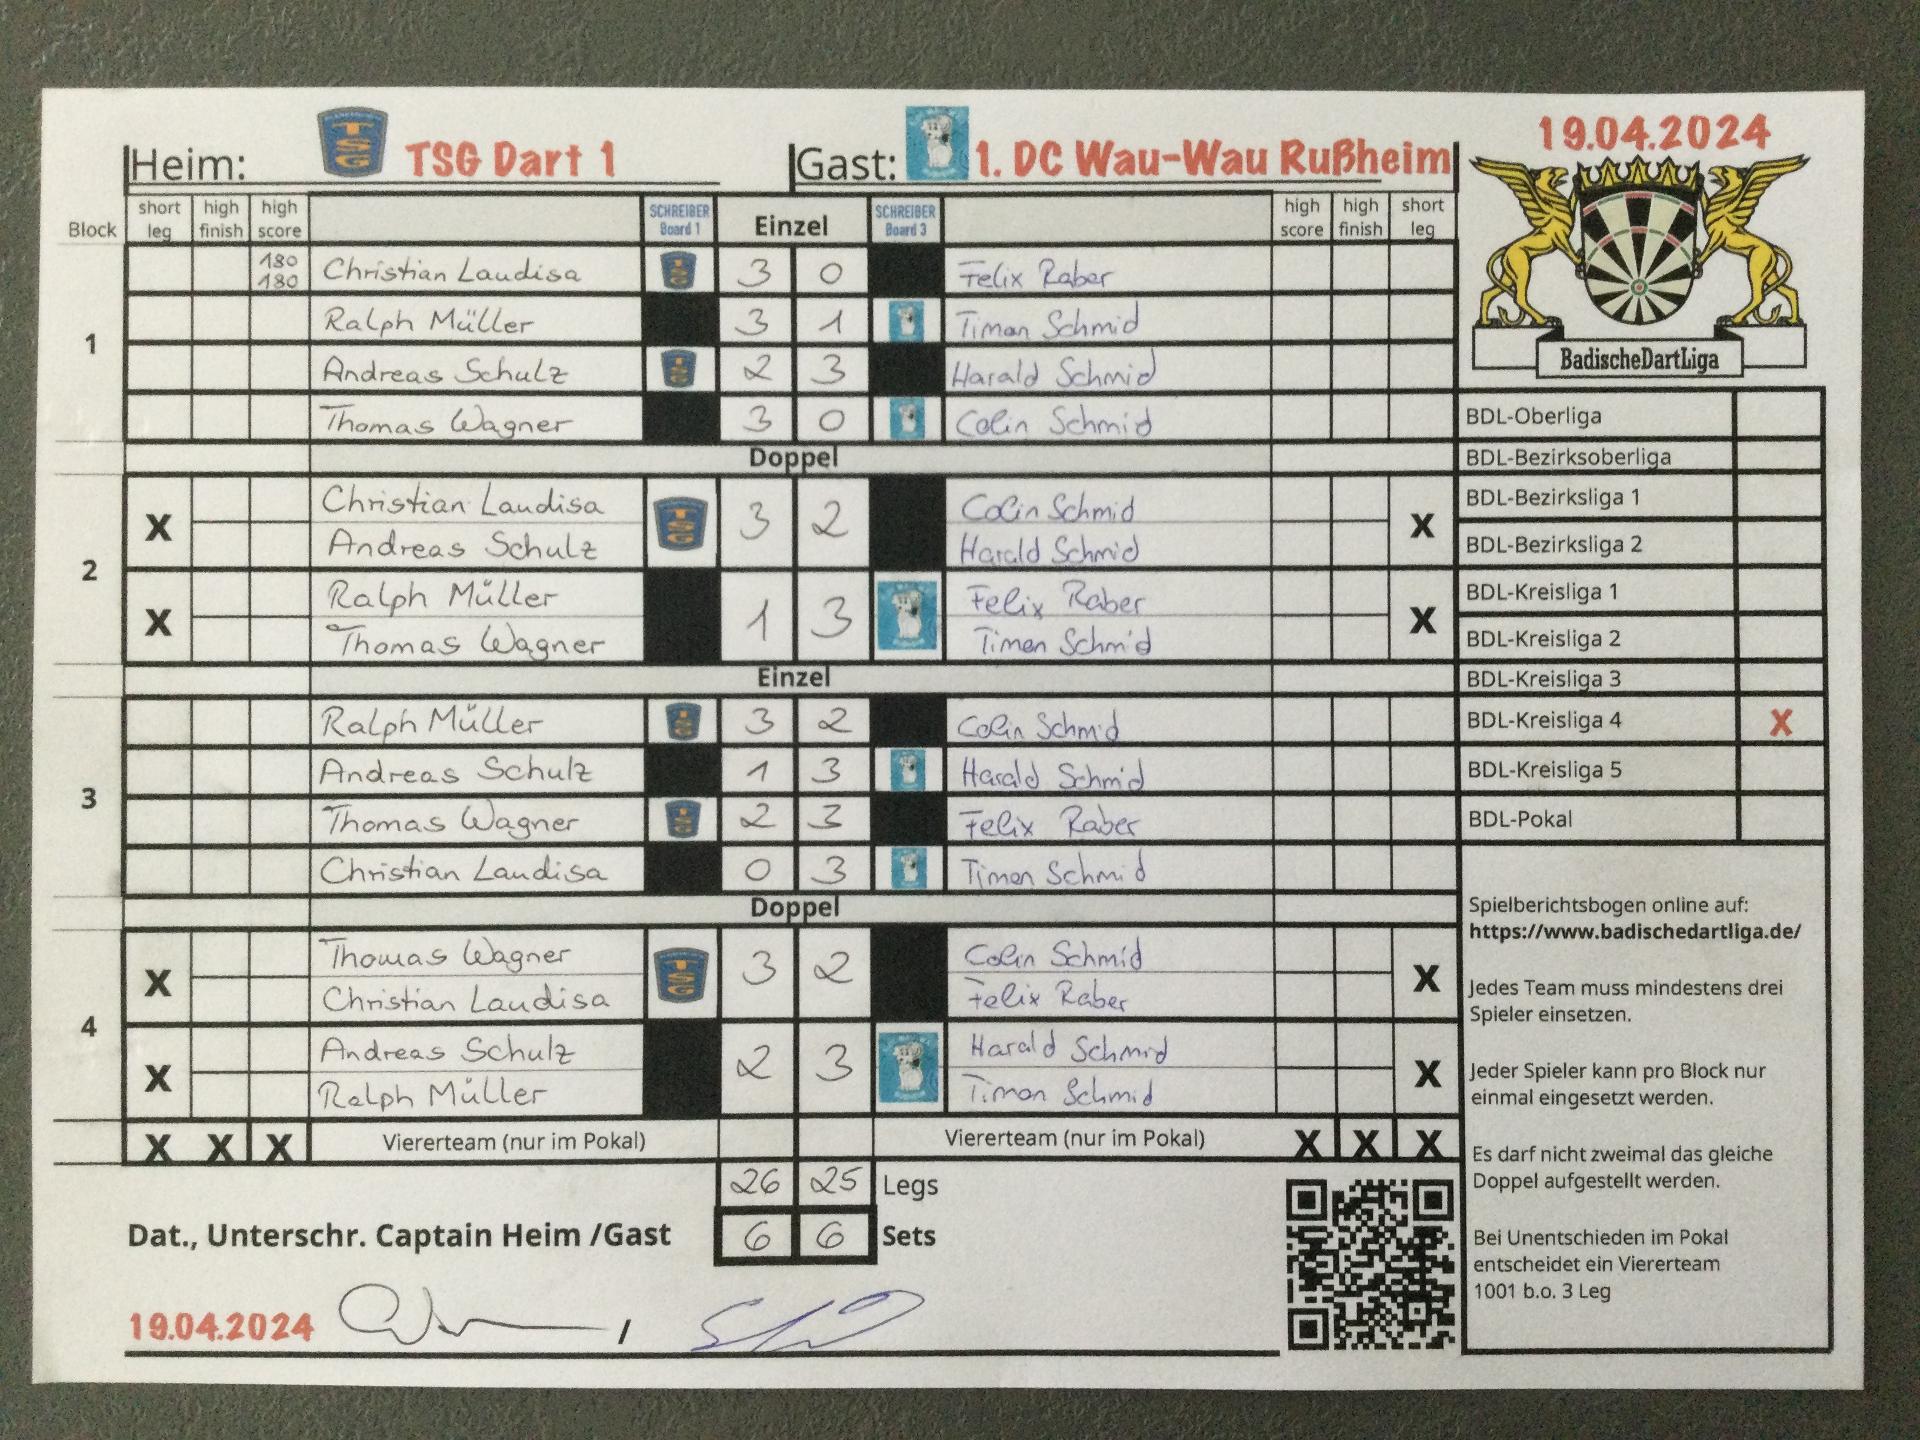 Heim: TSG TSG Dart 1 Gast: 1. DC Wau-Wau Rußheim 19.04.2024
Block short leg high finish high score SCHREIBER Board 1 Einzel SCHREIBER Board 3 high score high finish short leg
1
180 180 Christian Laudisa TSG 3 0 Felix Raber
Ralph Müller 3 1 Timon Schmid
Andreas Schulz TSG 2 3 Harald Schmid
Thomas Wagner 3 0 Colin Schmid
Doppel
2
X Christian Laudisa TSG 3 2 Colin Schmid X
Andreas Schulz Harald Schmid
X Ralph Müller 1 3 Felix Raber X
Thomas Wagner Timon Schmid
Einzel
3
Ralph Müller TSG 3 2 Colin Schmid
Andreas Schulz 1 3 Harald Schmid
Thomas Wagner TSG 2 3 Felix Raber
Christian Laudisa 0 3 Timon Schmid
Doppel
4
X Thomas Wagner TSG 3 2 Colin Schmid X
Christian Laudisa Felix Raber
X Andreas Schulz 2 3 Harald Schmid X
Ralph Müller Timon Schmid
X X X Viererteam (nur im Pokal) Viererteam (nur im Pokal) X X X
26 25 Legs
Dat., Unterschr. Captain Heim /Gast 6 6 Sets
19.04.2024 /
BadischeDartLiga
BDL-Oberliga
BDL-Bezirksoberliga
BDL-Bezirksliga 1
BDL-Bezirksliga 2
BDL-Kreisliga 1
BDL-Kreisliga 2
BDL-Kreisliga 3
BDL-Kreisliga 4 X
BDL-Kreisliga 5
BDL-Pokal
Spielberichtsbogen online auf:
https://www.badischedartliga.de/
Jedes Team muss mindestens drei
Spieler einsetzen.
Jeder Spieler kann pro Block nur
einmal eingesetzt werden.
Es darf nicht zweimal das gleiche
Doppel aufgestellt werden.
Bei Unentschieden im Pokal
entscheidet ein Viererteam
1001 b.o. 3 Leg